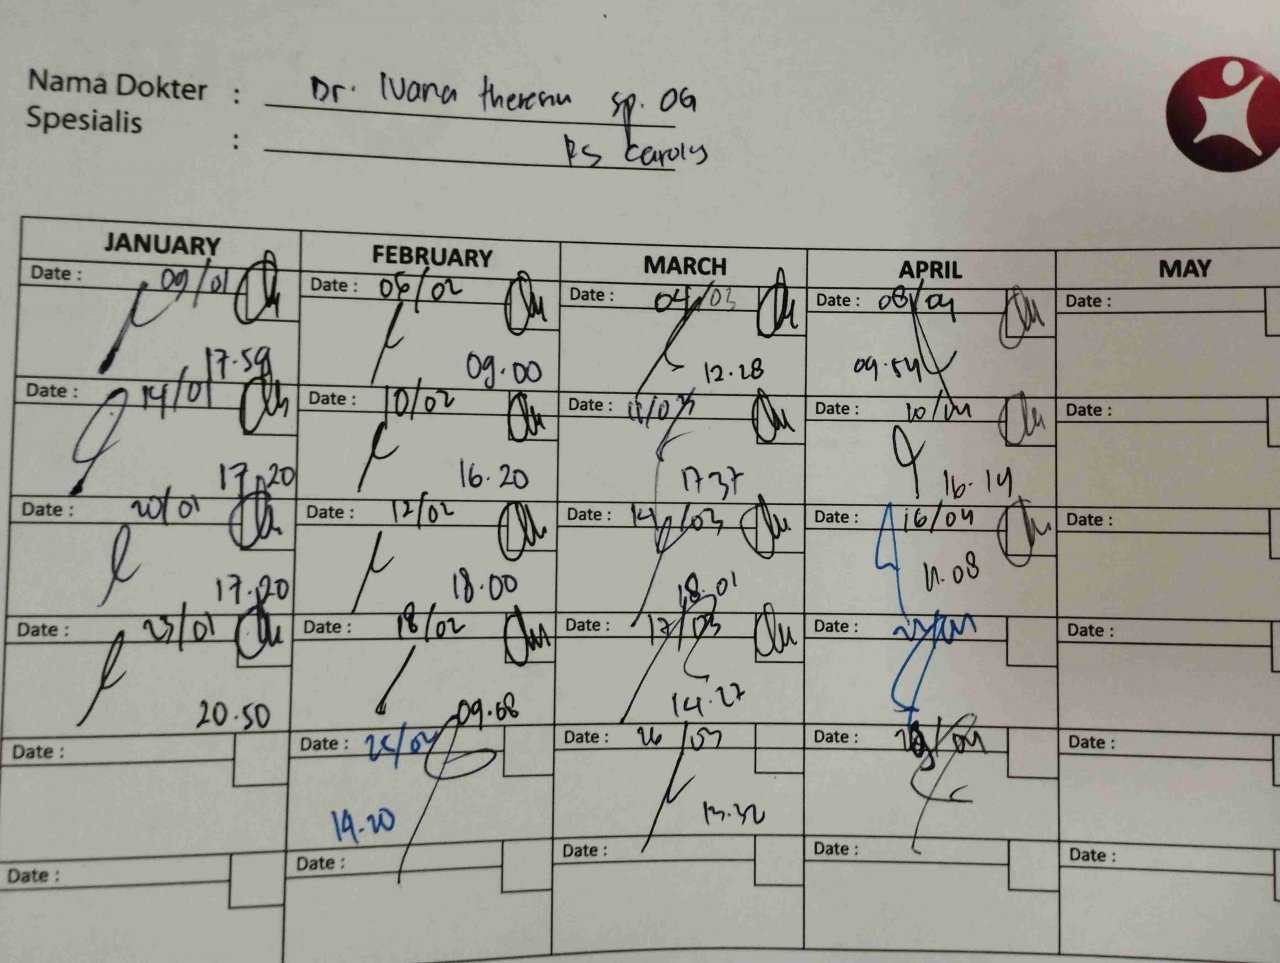 Nama Dokter : Dr. Ivana sp. OG
Spesialis : RS Carolus
JANUARY FEBRUARY MARCH APRIL MAY
Date : 09/01 Date : 06/02 Date : 04/03 Date : 08/04 Date :
17.59 09.00 12.28 09.54
Date : 14/01 Date : 10/02 Date : 11/03 Date : 10/04 Date :
17.20 16.20 17.37 16.14
Date : 20/01 Date : 12/02 Date : 14/03 Date : 16/04 Date :
17.20 18.00 18.01 11.08
Date : 23/01 Date : 18/02 Date : 17/03 Date : Date :
20.50 09.08 14.27
Date : Date : 25/02 Date : 26/03 Date : Date :
14.20 13.32
Date : Date : Date : Date : Date :